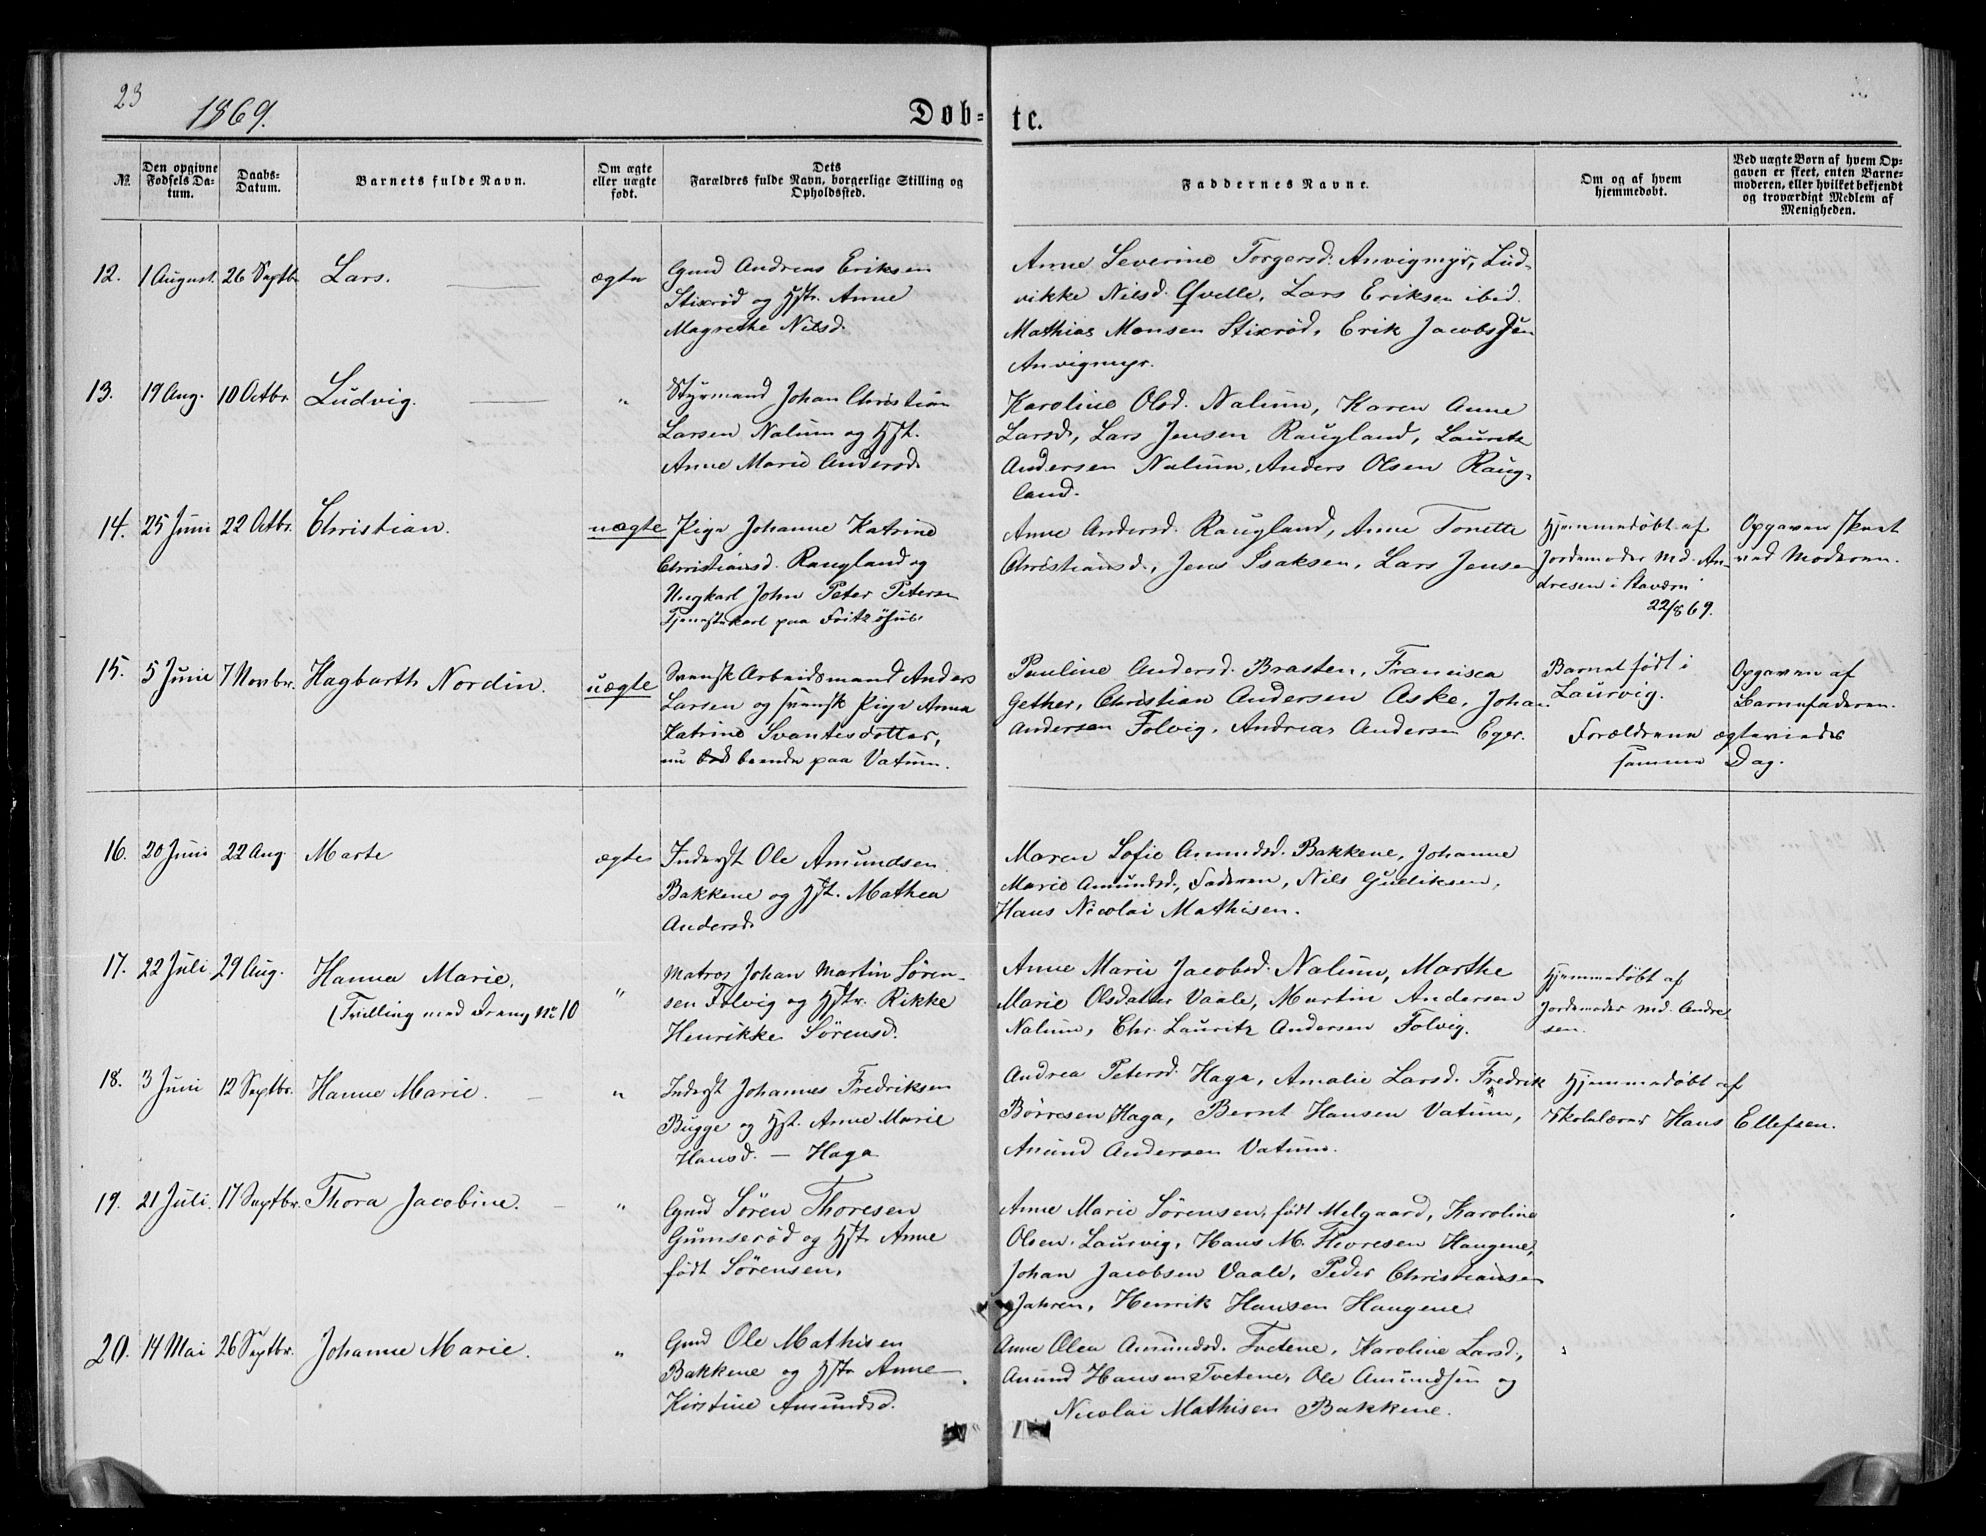 23
1869.
Døb-
te.
№
Den opgivne Fødsels Datum.
Daabs-Datum.
Barnets fulde Navn.
Om ægte eller uægte født.
Dets Forældres fulde Navn, borgerlige Stilling og Opholdssted.
Faddernes Navne.
Om og af hvem hjemmedøbt.
Ved uægte Børn af hvem Opgaven er skeet, enten Barnemoderen, eller hvilket bekjendt og troværdigt Medlem af Menigheden.
12. 1 August. 26 Septb. Lars. ægte
Gmd Andreas Eriksen
Stixrød og Hstr. Anne
Magrethe Nilsd.
Anne Severine Torgersd. Anvigmyr, Lud-
vikke Nilsd. Qvelle, Lars Eriksen ibid.
Mathias Monsen Stixrød, Erik Jacobsen
Anvigmyr.
13. 19 Aug. 10 Octbr. Ludvig. "
Styrmand Johan Christian
Larsen Nalum og Hst.
Anne Marie Andersd.
Karoline Olsd. Nalum, Karen Anne
Larsd., Lars Jensen Raugland, Lauritz
Andersen Nalum, Anders Olsen Raug-
land.
14. 25 Juni 22 Octbr. Christian. uægte
Pige Johanne Katrine
Christiansd. Raugland og
Ungkarl John Peter Petersen
Tjenestekarl paa Fritzøhus.
Anne Andersd. Raugland, Anne Tonette
Christiansd., Jens Isaksen, Lars Jensen
Hjemmedøbt af
Jordemoder Md. An-
dresen i Stavern
22/8 69.
Opgaven skeet
ved Moderen.
15. 5 Juni 7 Novbr. Hagbarth Nordin. uægte
Svensk Arbeidsmand Anders
Larsen og svensk Pige Anna
Katrine Svantesdotter,
nu boende paa Vatum.
Pauline Andersd. Brasten, Francisca
Gether, Christian Andersen Aske, Johan
Andersen Folvig, Andreas Andersen Eger.
Barnet født i
Laurvig.
Opgaven af
Barnefaderen.
Forældrene ægteviede
samme Dag.
16. 20 Juni 22 Aug. Marte ægte
Inderst Ole Amundsen
Bakkene og Hst. Mathea
Andersd.
Maren Sofie Amundsd. Bakkene, Johanne
Marie Amundsd., Faderen, Nils Gulliksen,
Hans Nicolai Mathisen.
17. 22 Juli 29 Aug. Hanna Marie,
(Tvilling med Dreng No 10 "
Matros Johan Martin Søren-
sen Folvig og Hstr. Rikke
Henrikke Sørensd.
Anne Marie Jacobsd. Nalum, Marthe
Marie Olsdatter Vaale, Martin Andersen
Nalum, Chr. Lauritz Andersen Folvig.
Hjemmedøbt af
Jordemoder Md. Andre-
sen.
18. 3 Juni 12 Septbr. Hanne Marie. "
Inderst Johannes Fredriksen
Bugge og Hst. Anne Marie
Hansd. — Haga
Andrea Petersd. Haga, Amalie Larsd. Fredrik
Børresen Haga, Bernt Hansen Vatum,
Amund Andersen Vatum.
Hjemmedøbt af
Skolelærer Hans Ellefsen.
19. 21 Juli. 17 Septbr. Thora Jacobine. "
Gmd Søren Thoresen
Gumserød og Hst. Anne
født Sørensen.
Anne Marie Sørensen, født Melgaard, Karoline
Olsen, Laurvig, Hans M. Thoresen Haugene,
Johan Jacobsen Vaale, Peder Christiansen
Jahren, Henrik Hansen Haugene
20. 14 Mai 26 Septbr. Johanne Marie. "
Gmd Ole Mathisen
Bakkene og Hstr Anne
Kirstine Amundsd.
Anne Olea Amundsd. Tvetene, Karoline Larsd.,
Amund Hansen Tvetene, Ole Amundsen og
Nicolai Mathisen Bakkene.